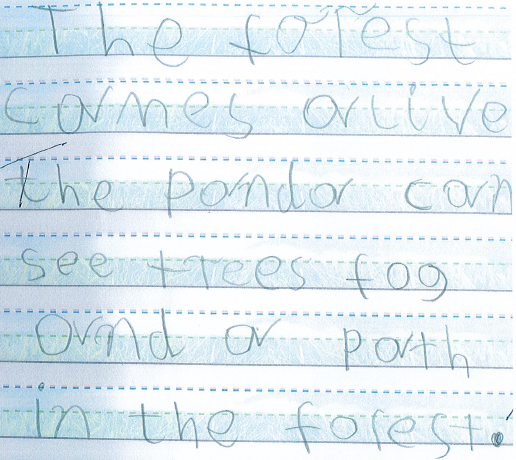 The forest
cames alive
The panda can
see trees fog
and a path
in the forest.